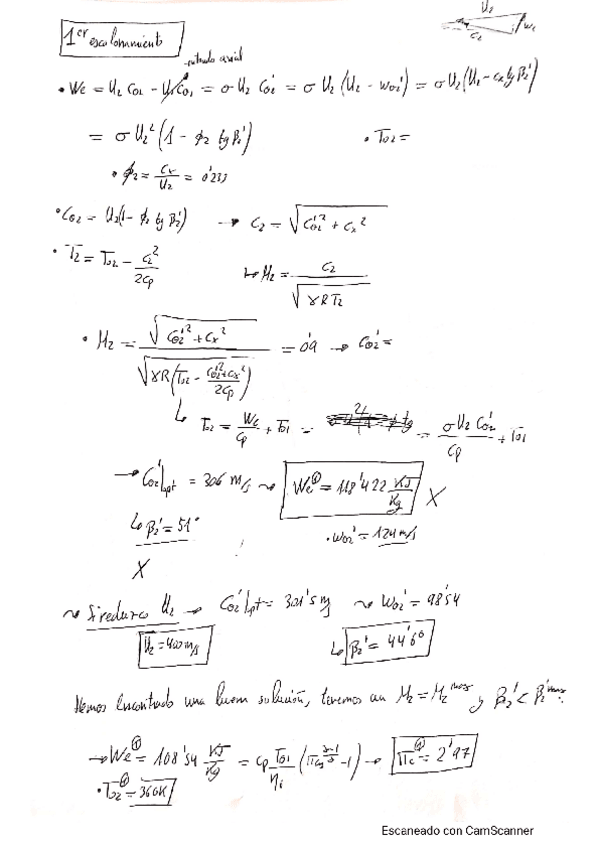 1er escalonamiento
U2
C2
W2
entrada axial
• We = U2 Cθ2 - U1 Cθ1 = σ U2 Cθ2' = σ U2 (U2 - Wθ2') = σ U2 (U2 - Cx tg β2')
= σ U2² (1 - φ2 tg β2')
• T02 =
• φ2 = Cx/U2 = 0'233
• Cθ2 = U2(1 - φ2 tg β2') → C2 = √(Cθ2'² + Cx²)
• T2 = T02 - C2²/2Cp
↳ M2 = C2/√(γRT2)
• M2 = √(Cθ2'² + Cx²)/√(γR(T02 - (Cθ2'² + Cx²)/2Cp)) = 0'9 → Cθ2' =
↳ T02 = We/Cp + T01 = = σ U2 Cθ2'/Cp + T01
→ Cθ2'|opt = 306 m/s ~> We① = 118'422 KJ/Kg X
↳ β2' = 51°
• Wθ2' = 124 m/s
X
~> Si reduzco U2 → Cθ2'|opt = 301'5 m/s ~> Wθ2' = 98'54
U2 = 400 m/s
↳ β2' = 44'6°
Hemos encontrado una buena solución, tenemos un M2 = M2max y β2' < β2'max.
→ We① = 108'54 KJ/Kg = Cp T01/ηi (πc^(γ-1/γ) - 1) → πc① = 2'97
• T02① = 360K
Escaneado con CamScanner